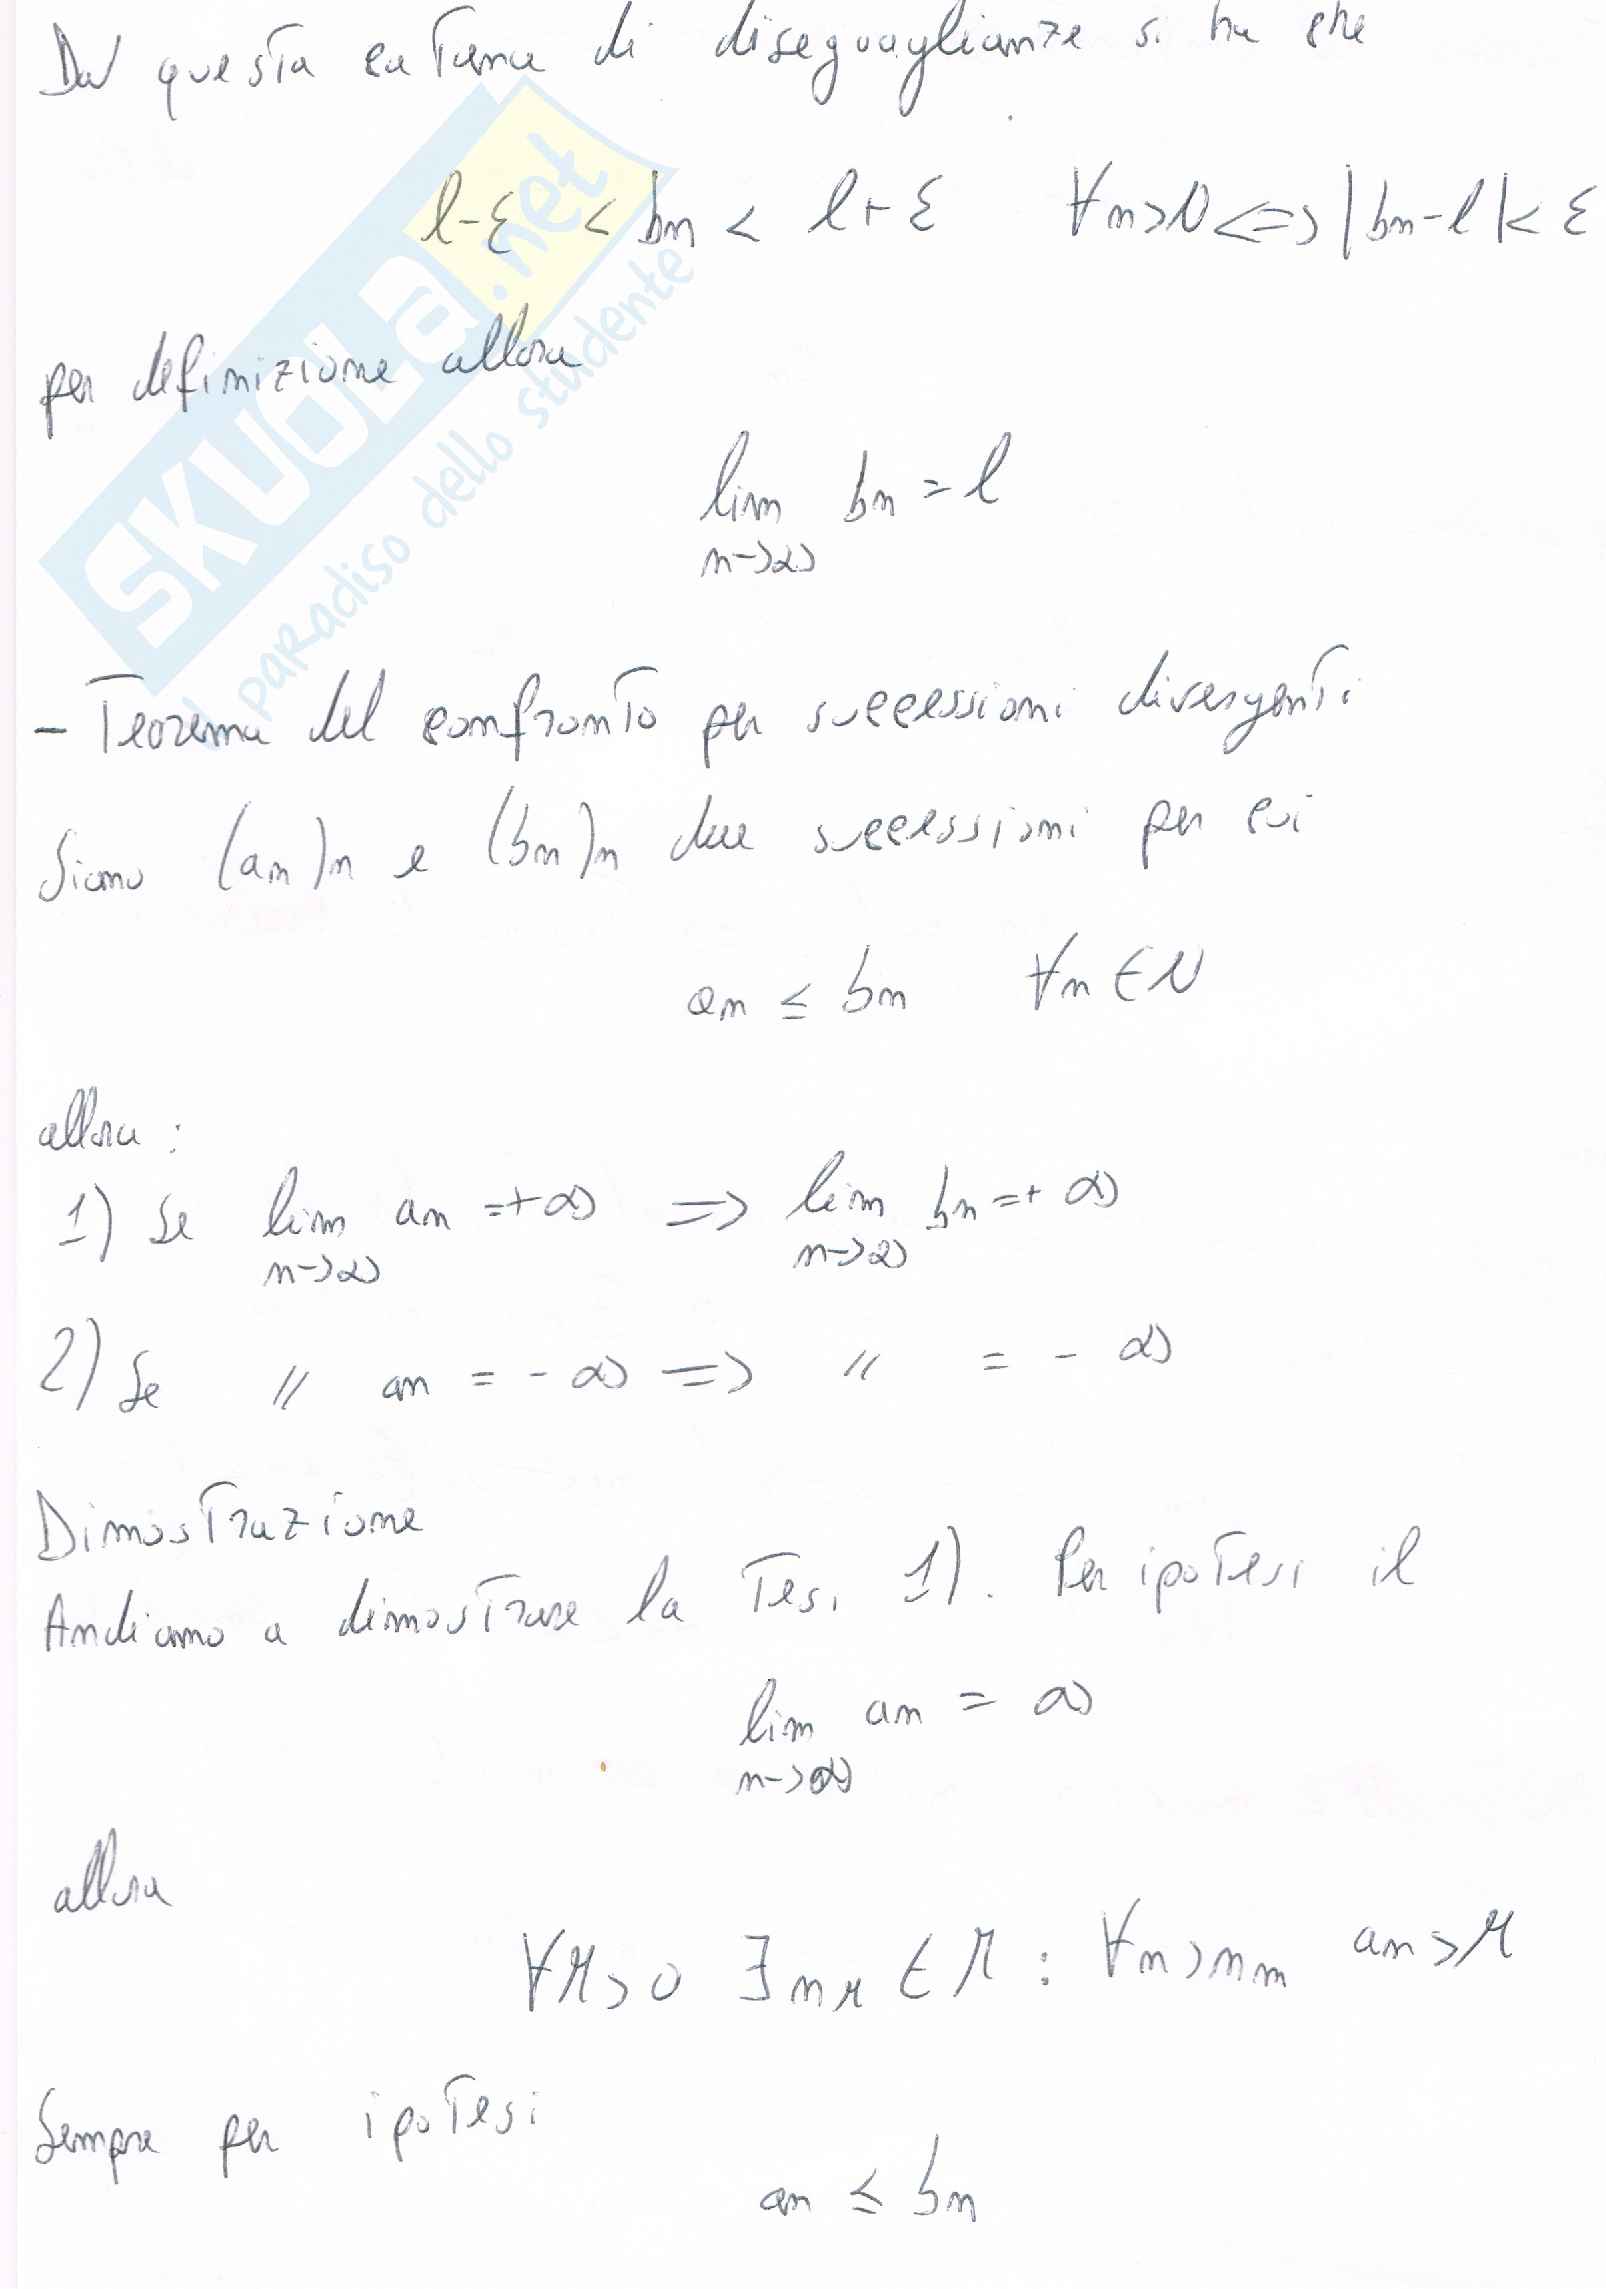 Da questa catena di diseguaglianze si ha che
l-ε < bn < l+ε ∀n>N <=> |bn-l|< ε
per definizione allora
lim bn = l
n->∞
- Teorema del confronto per successioni divergenti
Siano (an)n e (bn)n due successioni per cui
an ≤ bn ∀n ∈ N
allora :
1) Se lim an =+∞ => lim bn =+∞
n->∞ n->∞
2) Se // an = -∞ => // = -∞
Dimostrazione
Andiamo a dimostrare la Tesi 1). Per ipotesi il
lim an = ∞
n->∞
allora
∀M>0 ∃ nM ∈ M : ∀n>nm an>M
Sempre per ipotesi
an ≤ bn
SKUOLA.net
il paradiso dello studente